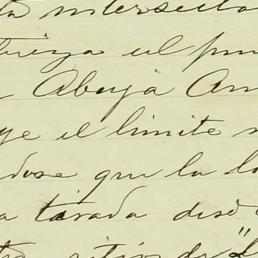 ta intersecta
el pun
Abeja Am
ye el limite
dose que la lo
a tirada desd
sitio de "L